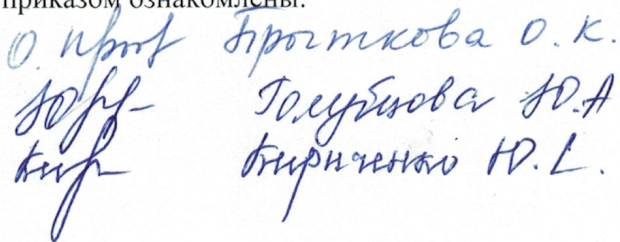 приказом ознакомлены:
О. Прыт Прыткова О. К.
Голубцова Ю.А
Кир Кириченко Ю. L.